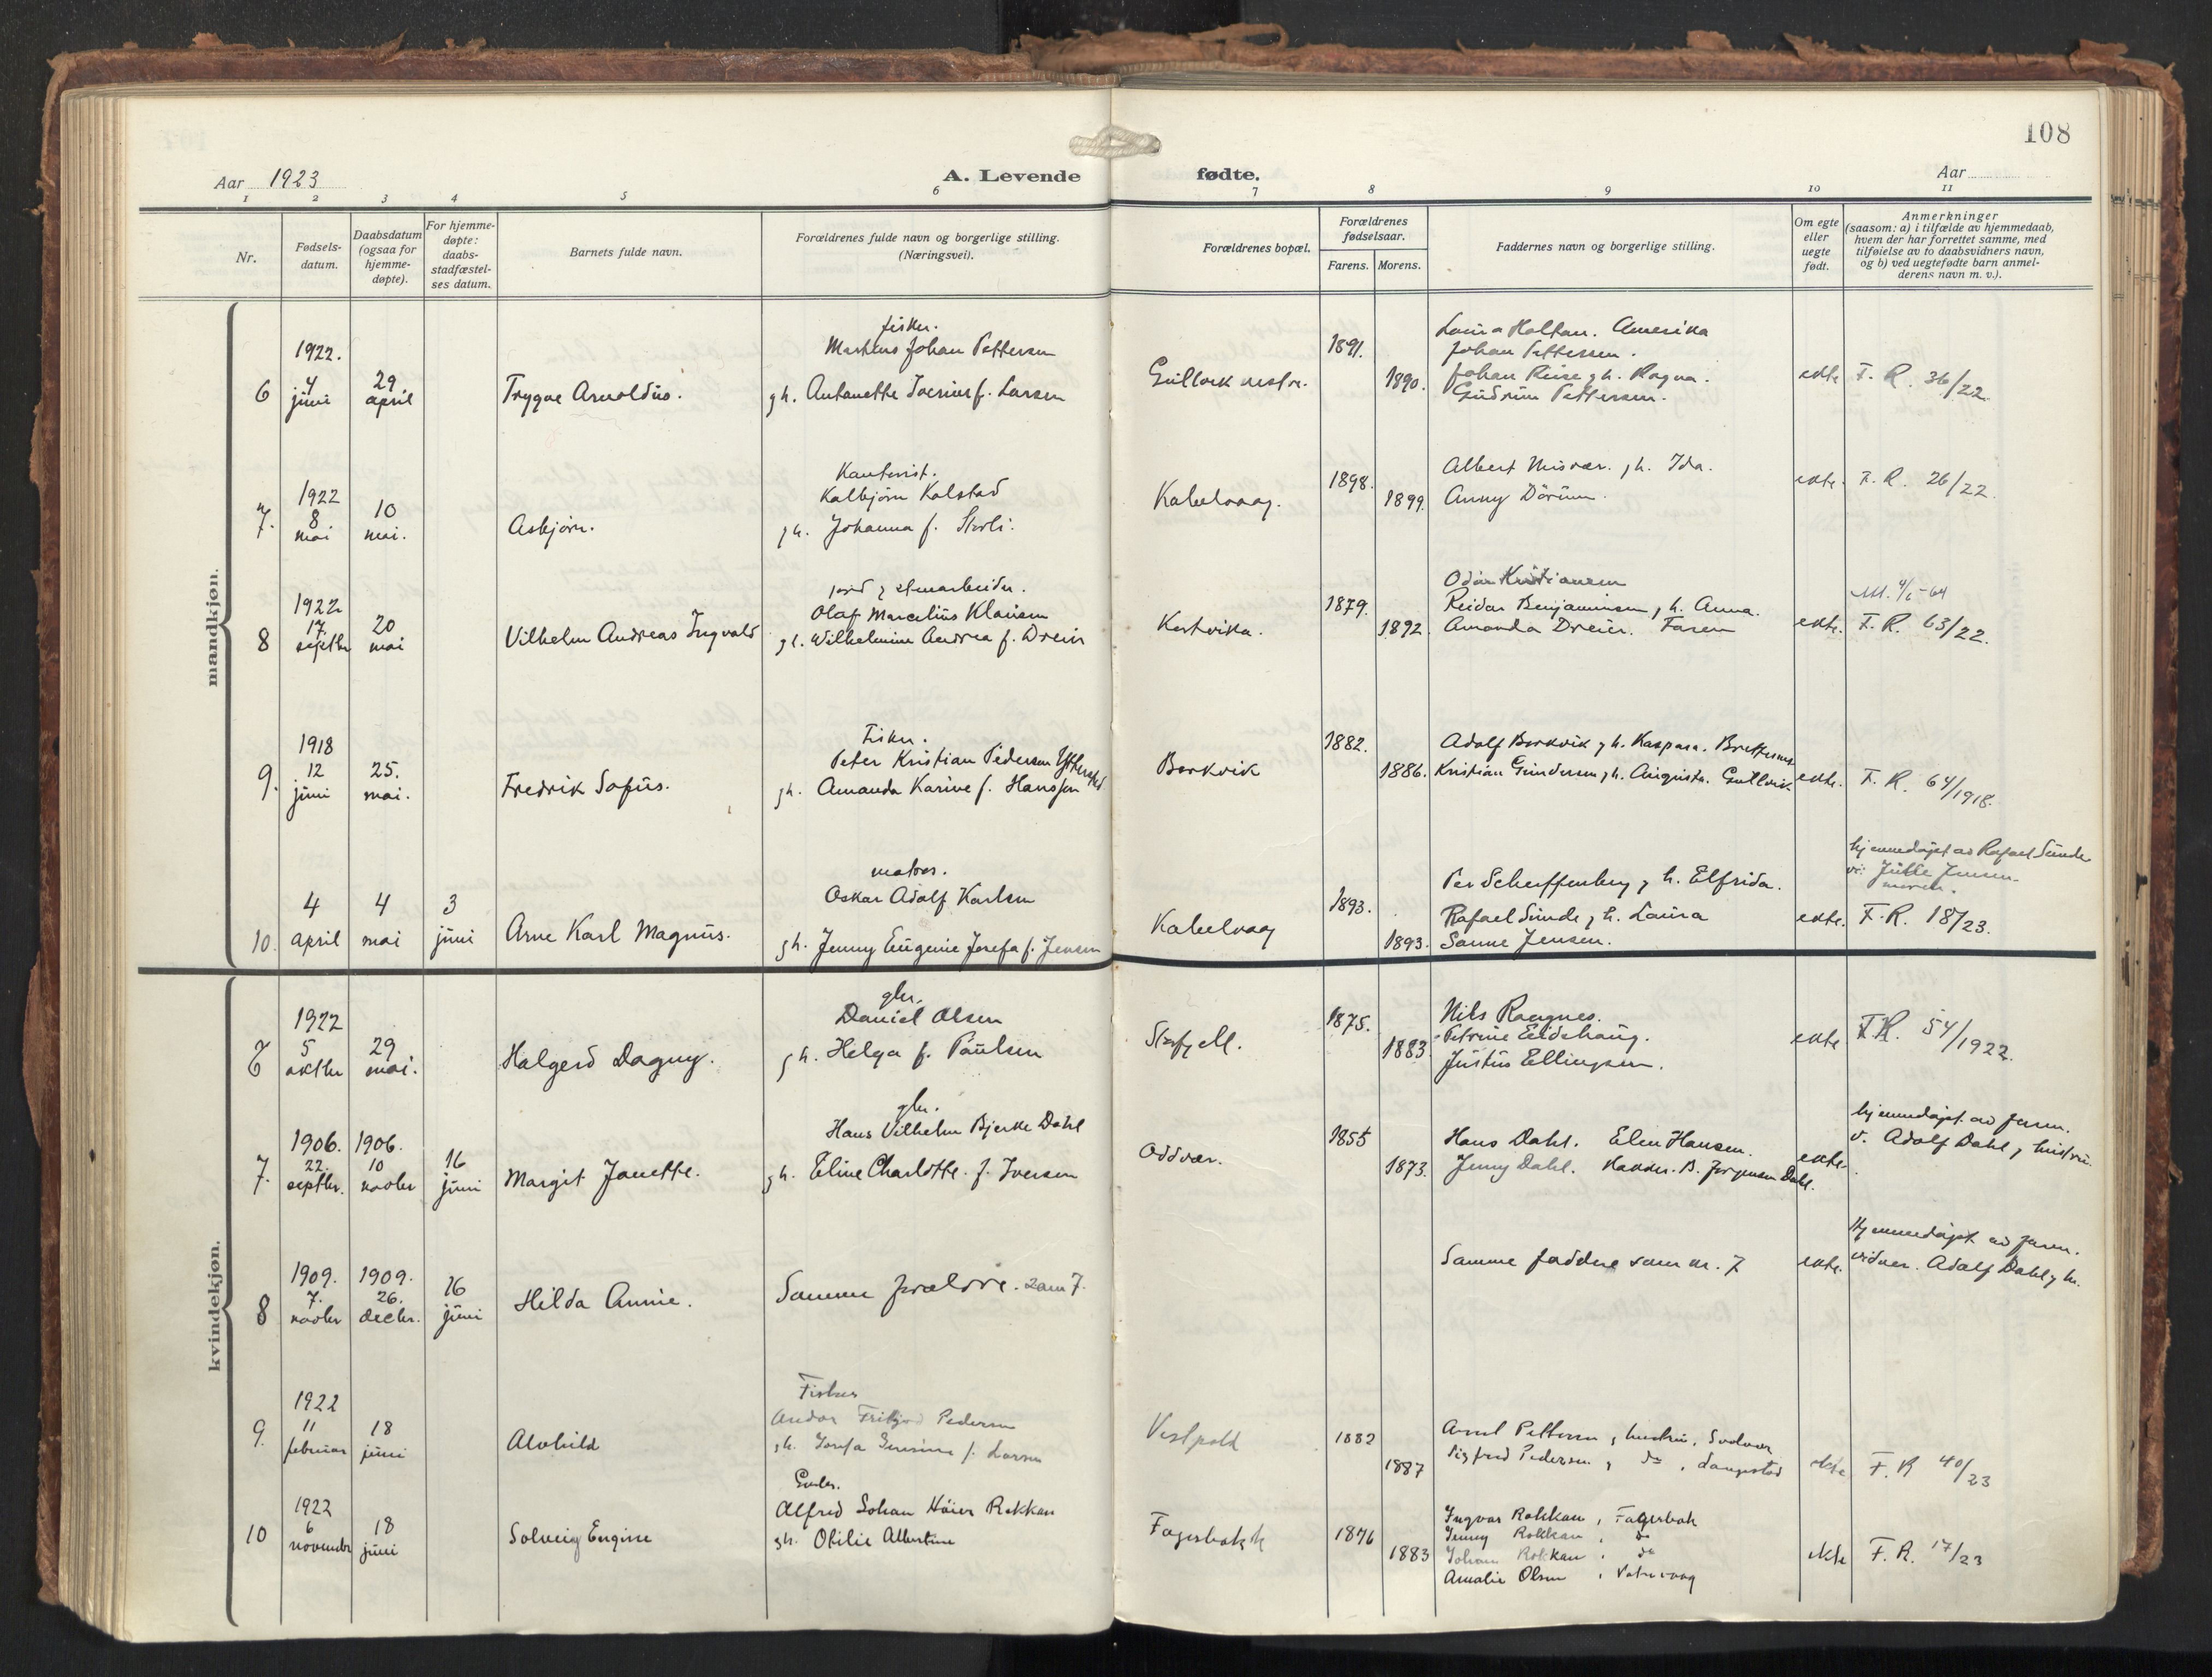 108
Aar 1923
A. Levende fødte.
Aar
1 2 3 4 5 6 7 8 9 10 11
Nr.
Fødsels-
datum.
Daabsdatum
(ogsaa for
hjemme-
døpte).
For hjemme-
døpte:
daabs-
stadfæstel-
ses datum.
Barnets fulde navn.
Forældrenes fulde navn og borgerlige stilling.
(Næringsvei).
Forældrenes bopæl.
Forældrenes
fødselsaar.
Farens. Morens.
Faddernes navn og borgerlige stilling.
Om egte
eller
uegte
født.
Anmerkninger
(saasom: a) i tilfælde av hjemmedaab,
hvem der har forrettet samme, med
tilføielse av to daabsvidners navn,
og b) ved uegtefødte barn anmel-
derens navn m. v.).
mandkjøn.
6
1922.
4
juni
29
april
Trygve Arnoldus.
fisker.
Johan Pettersen
gh. Antonette f. Larsen
1891.
1890.
Laura Holtan. Amerika
Johan Pettersen.
Johan gh. Ragna.
Gudrun Pettersen.
ekte
F. R. 36/22.
7.
1922
8
mai
10
mai.
Asbjørn.
Kolbjørn Kolstad
gh. Johanna f. Storli.
Kabelvaag.
1898.
1899.
Albert Misvær. gh. Ida.
Anny Dörum.
ekte.
F. R. 26/22.
8
1922
17.
septbr
20
mai
Vilhelm Andreas Ingvald
jord g stenarbeider.
Olaf Marcelius Klausen
gh. Wilhelmine Andrea f. Dreier
1879.
1892.
Odin Kristiansen
Reidar Benjaminsen gh. Anna.
Amanda Dreier. Faren
ekte.
F. R. 63/22.
9.
1918
12
juni
25.
mai.
Fredrik Sofus.
Fisker.
Peter Kristian Pedersen
gh. Amanda Karine f. Hanssen
Borkvik
1882.
1886.
Adolf Borkvik gh. Kaspara. Brettesnes
Kristian Gundersen gh. Augusta. Gullvik
ekte.
F. R. 64/1918.
10.
4
april
4
mai
3
juni
Arne Karl Magnus.
matros.
Oskar Adolf Karlsen
gh. Jenny Eugenie Josefa f. Jensen
Kabelvaag
1893.
1893.
Per Scheffenberg gh. Elfrida.
Rafael Sunde gh. Laura
Sanne Jensen.
ekte.
hjemmedøpt av Rafael Sunde
Jensen
F. R. 18/23.
kvindekjøn.
6
1922
5
oktbr
29
mai.
Halgerd Dagny.
gbr.
Daniel Olsen
gh. Helga f. Paulsen
1875.
1883.
Nils
Petrine Eidehaug.
Justus Ellingsen.
ekte
F. R. 54/1922.
7.
1906.
22.
septbr.
1906.
10
novbr
16
juni
Margit Janette.
gbr.
Hans Vilhelm Bjerke Dahl
gh. Eline Charlotte. f. Iversen
Oddvær.
1855
1873.
Hans Dahl. Elen Hansen.
Jenny Dahl. B. Jørgensen Dahl.
ekte.
hjemmedøpt av faren.
v. Adolf Dahl g hustru.
8
1909.
7.
novbr
1909.
26.
decbr.
16
juni
Hilda Annie.
Samme forældre. som 7.
Samme faddere som nr. 7
ekte.
Hjemmedøpt av faren.
vidner. Adolf Dahl g h.
9.
1922
11
februar
18
juni
Alvhild
Fisker
Andor Fritjof Pedersen
gh. Josefa f. Larsen
Vestpoll
1882
1887
Pettersen g hustru, Svolvær
Sigfred Pedersen g do,
ekte
F. R 40/23
10
1922
6
november
18
juni
Solveig Eugine
Alfred Johan Høier Rokkan
gh. Otilie Albertine
1876
1883
Ingvar Rokkan, Fagerbak
Jenny Rokkan, do
Johan Rokkan, do
Amalie Olsen,
ekte
F. R. 17/23